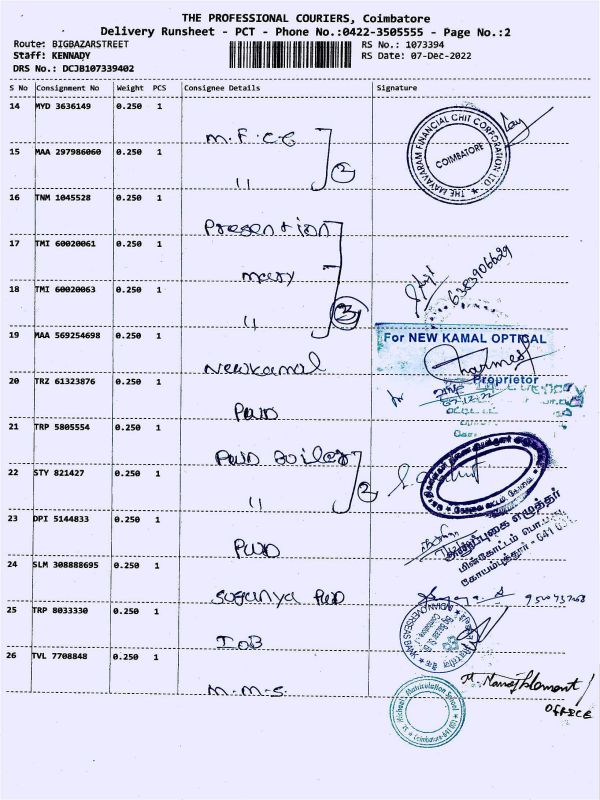 THE PROFESSIONAL COURIERS, Coimbatore
Delivery Runsheet - PCT - Phone No.:0422-3505555 - Page No.:2
Route: BIGBAZARSTREET RS No.: 1073394
Staff: KENNADY RS Date: 07-Dec-2022
DRS No.: DCJB107339402
S No Consignment No Weight PCS Consignee Details Signature
14 MYD 3636149 0.250 1
M.F.C.C
THE MAYAVARAM FINANCIAL CHIT CORPORATION LTD.
COIMBATORE
15 MAA 297986060 0.250 1
" 2
16 TNM 1045528 0.250 1
Presention
17 TMI 60020061 0.250 1
mary
6383906629
18 TMI 60020063 0.250 1
" 3
19 MAA 569254698 0.250 1
For NEW KAMAL OPTICAL
Newkamal
Proprietor
20 TRZ 61323876 0.250 1
PWD
21 TRP 5805554 0.250 1
PWD Boiler
22 STY 821427 0.250 1
" 2
23 DPI 5144833 0.250 1
PWD
24 SLM 308888695 0.250 1
Suganya PWD
25 TRP 8033330 0.250 1
IOB
INDIAN OVERSEAS BANK
26 TVL 7708848 0.250 1
M.M.S.
St. Michael's Matriculation School
Coimbatore
OFFICE